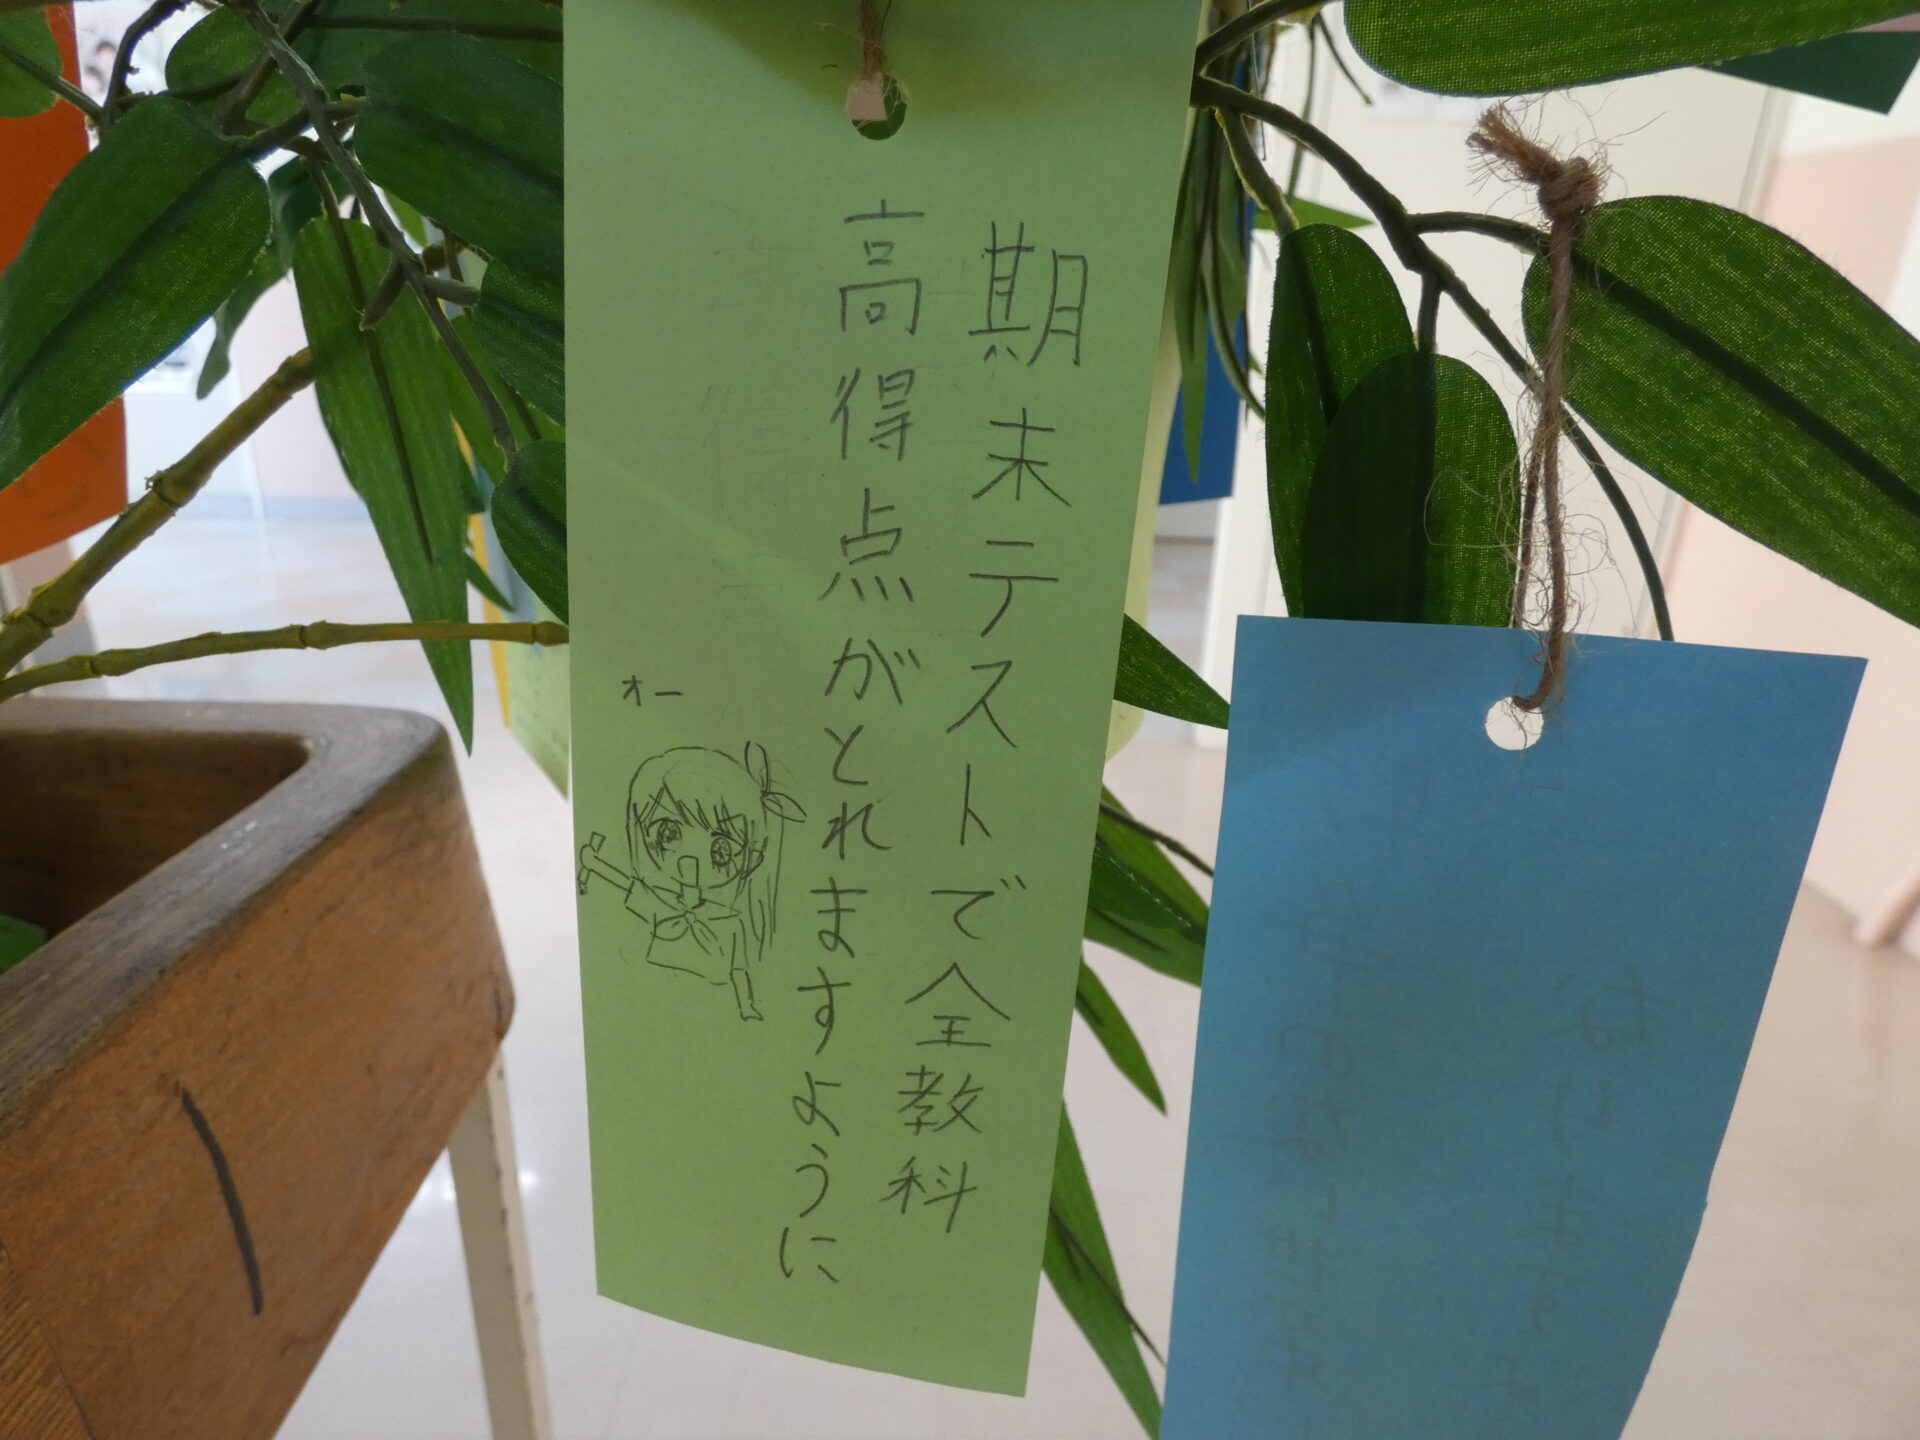 期末テストで全教科
高得点がとれますように
オー